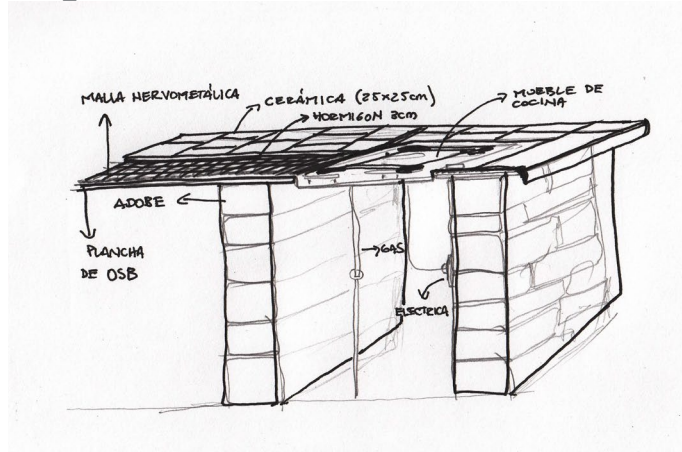 MALLA NERVOMETÁLICA
CERÁMICA (25x25cm)
HORMIGON 3cm
MUEBLE DE
COCINA
ADOBE
PLANCHA
DE OSB
GAS
ELECTRICA